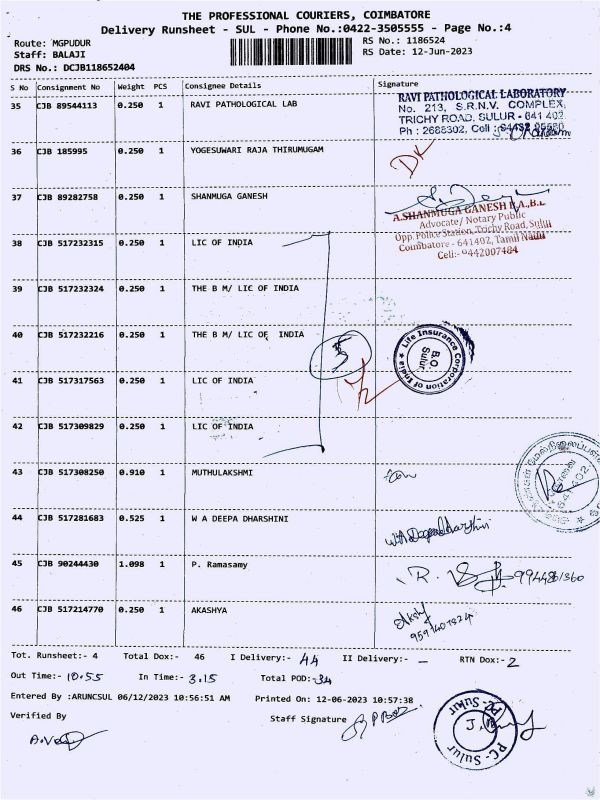 THE PROFESSIONAL COURIERS, COIMBATORE
Delivery Runsheet - SUL - Phone No.:0422-3505555 - Page No.:4
Route: MGPUDUR
RS No.: 1186524
Staff: BALAJI
RS Date: 12-Jun-2023
DRS No.: DCJB118652404
S No Consignment No Weight PCS Consignee Details Signature
35 CJB 89544113 0.250 1 RAVI PATHOLOGICAL LAB
RAVI PATHOLOGICAL LABORATORY
No. 213, S.R.N.V. COMPLEX,
TRICHY ROAD, SULUR - 641 402
Ph : 2688302, Cell :
36 CJB 185995 0.250 1 YOGESUWARI RAJA THIRUMUGAM
DK
37 CJB 89282758 0.250 1 SHANMUGA GANESH
A.SHANMUGA GANESH B.A.,B.L
Advocate/ Notary Public
Opp. Police Station, Trichy Road, Sulur
Coimbatore - 641402, Tamil Nadu
Cell:- 9442007484
38 CJB 517232315 0.250 1 LIC OF INDIA
39 CJB 517232324 0.250 1 THE B M/ LIC OF INDIA
40 CJB 517232216 0.250 1 THE B M/ LIC OF INDIA
5
Life Insurance Corporation of India ★
B.O
Sulur
41 CJB 517317563 0.250 1 LIC OF INDIA
42 CJB 517309829 0.250 1 LIC OF INDIA
43 CJB 517308250 0.910 1 MUTHULAKSHMI
44 CJB 517281683 0.525 1 W A DEEPA DHARSHINI
W A Deepadharshini
45 CJB 90244430 1.098 1 P. Ramasamy
46 CJB 517214770 0.250 1 AKASHYA
Tot. Runsheet:- 4 Total Dox:- 46 I Delivery:- 44 II Delivery:- - RTN Dox:- 2
Out Time:- 10.55 In Time:- 3.15 Total POD:- 34
Entered By :ARUNCSUL 06/12/2023 10:56:51 AM Printed On: 12-06-2023 10:57:38
Verified By Staff Signature
PC- Sulur